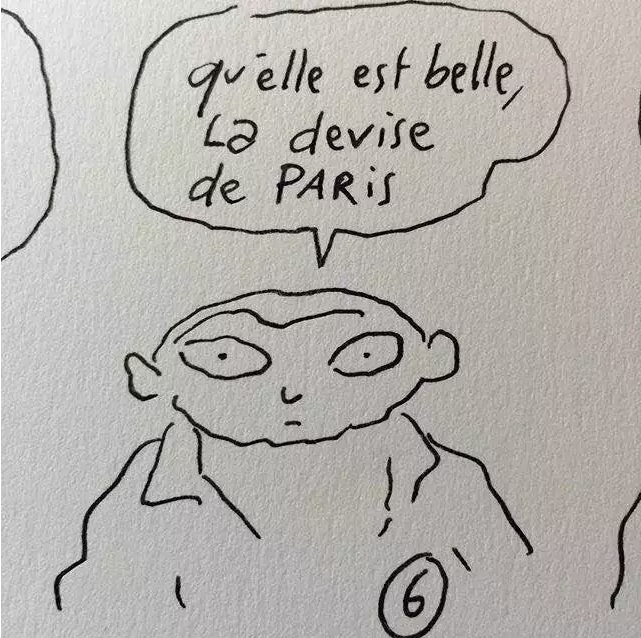 qu'elle est belle,
La devise
de PARiS
6